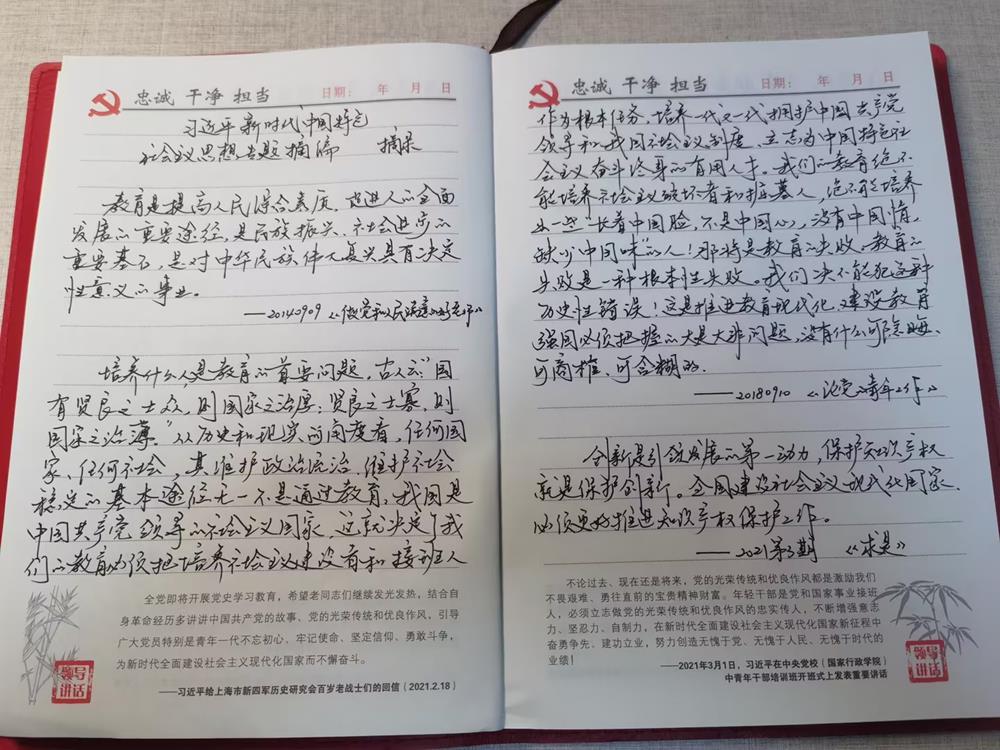 忠诚 干净 担当
日期： 年 月 日
习近平新时代中国特色
社会主义思想专题摘编 摘录
教育是提高人民综合素质、促进人的全面
发展的重要途径，是民族振兴、社会进步的
重要基石，是对中华民族伟大复兴具有决定
性意义的事业。
——20140909《做党和人民满意的好老师》
培养什么人是教育的首要问题，古人云：“国
有贤良之士众，则国家之治厚；贤良之士寡，则
国家之治薄。”从历史和现实的角度看，任何国
家、任何社会，其维护政治统治、维护社会
稳定的基本途径无一不是通过教育。我国是
中国共产党领导的社会主义国家，这就决定了我
们的教育必须把培养社会主义建设者和接班人
全党即将开展党史学习教育，希望老同志们继续发光发热，结合自
身革命经历多讲讲中国共产党的故事、党的光荣传统和优良作风，引导
广大党员特别是青年一代不忘初心、牢记使命、坚定信仰、勇敢斗争，
为新时代全面建设社会主义现代化国家而不懈奋斗。
——习近平给上海市新四军历史研究会百岁老战士们的回信（2021.2.18）
领导
讲话
忠诚 干净 担当
日期： 年 月 日
作为根本任务，培养一代又一代拥护中国共产党
领导和我国社会主义制度、立志为中国特色社
会主义奋斗终身的有用人才。我们的教育绝不
能培养社会主义破坏者和掘墓人，绝不能培养
出一些“长着中国脸，不是中国心，没有中国情，
缺少中国味”的人！那将是教育的失败。教育的
失败是一种根本性失败。我们决不能犯这种
历史性错误！这是推进教育现代化、建设教育
强国必须把握的大是大非问题，没有什么可隐晦、
可商榷、可含糊的。
——20180910《论党的青年工作》
创新是引领发展的第一动力，保护知识产权
就是保护创新。全国建设社会主义现代化国家，
必须更好推进知识产权保护工作。
——2021第3期 《求是》
不论过去、现在还是将来，党的光荣传统和优良作风都是激励我们
不畏艰难、勇往直前的宝贵精神财富。年轻干部是党和国家事业接班
人，必须立志做党的光荣传统和优良作风的忠实传人，不断增强意志
力、坚忍力、自制力，在新时代全面建设社会主义现代化国家新征程中
奋勇争先、建功立业，努力创造无愧于党、无愧于人民、无愧于时代的
业绩！
——2021年3月1日，习近平在中央党校（国家行政学院）
中青年干部培训班开班式上发表重要讲话
领导
讲话